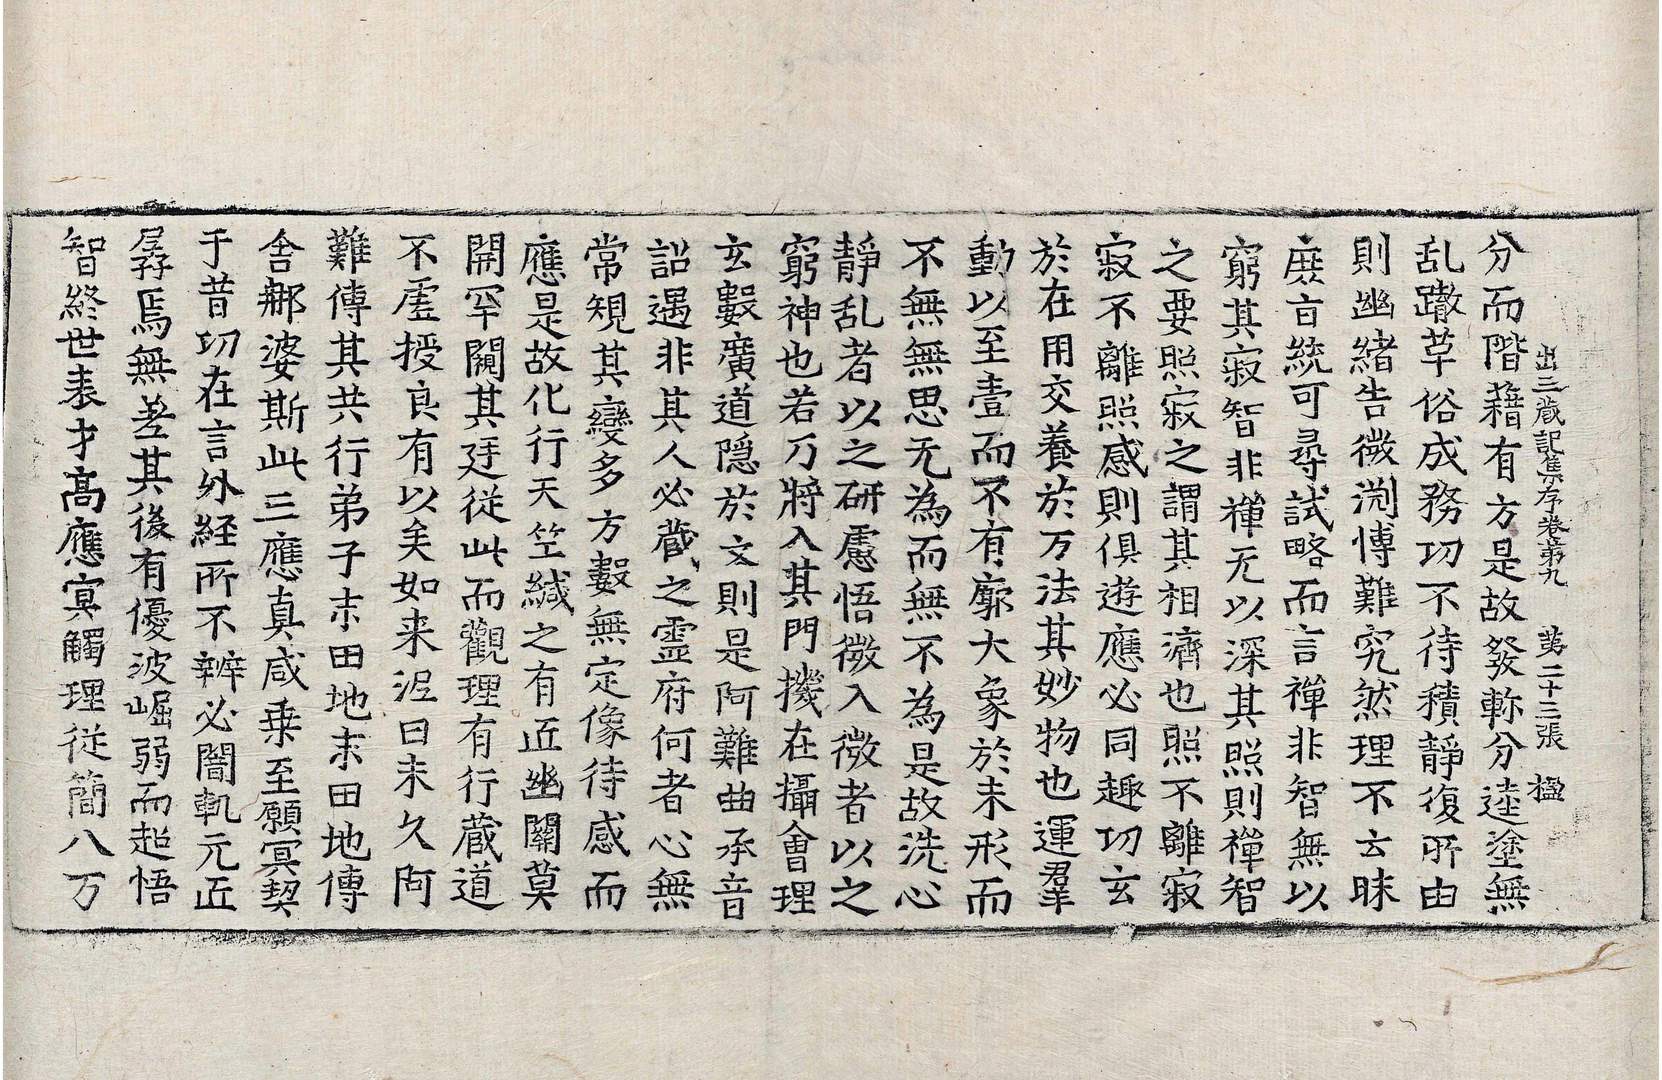 出三蔵記集序卷第九 苐二十三張 楹
分而階藉有方是故發軫分逵塗無
乱蹾草俗成務功不待積靜復所由
則幽緒告微渕慱難究然理不云昧
庶㫖統可尋試略而言禪非智無以
窮其寂智非禪无以深其照則禪智
之要照寂之謂其相濟也照不離寂
寂不離照感則俱遊應必同趣功玄
於在用交養於万法其妙物也運羣
動以至壹而不有廓大象於未形而
不無無思无為而無不為是故洗心
靜乱者以之研慮悟微入微者以之
窮神也若乃將入其門機在攝會理
玄數廣道隱於文則是阿難曲承音
詔遇非其人必蔵之霊府何者心無
常規其變多方數無定像待感而
應是故化行天竺緘之有匠幽關莫
開罕闚其廷従此而觀理有行蔵道
不虛授良有以矣如来泥曰未久阿
難傳其共行弟子末田地末田地傳
舍那婆斯此三應真咸乗至願冥契
于昔功在言外経所不辨必闇軌元匠
孱焉無差其後有優波崛弱而超悟
智終世表才高應冥觸理従簡八万